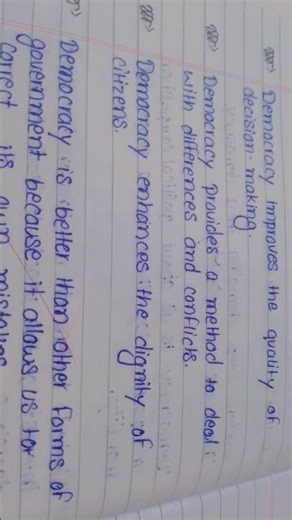 Democracy improves the quality of
decision-making.
Democracy provides a method to deal
with differences and conflicts.
Democracy enhances the dignity of
citizens.
Democracy is better than other forms of
government because it allows us to
correct its own mistakes